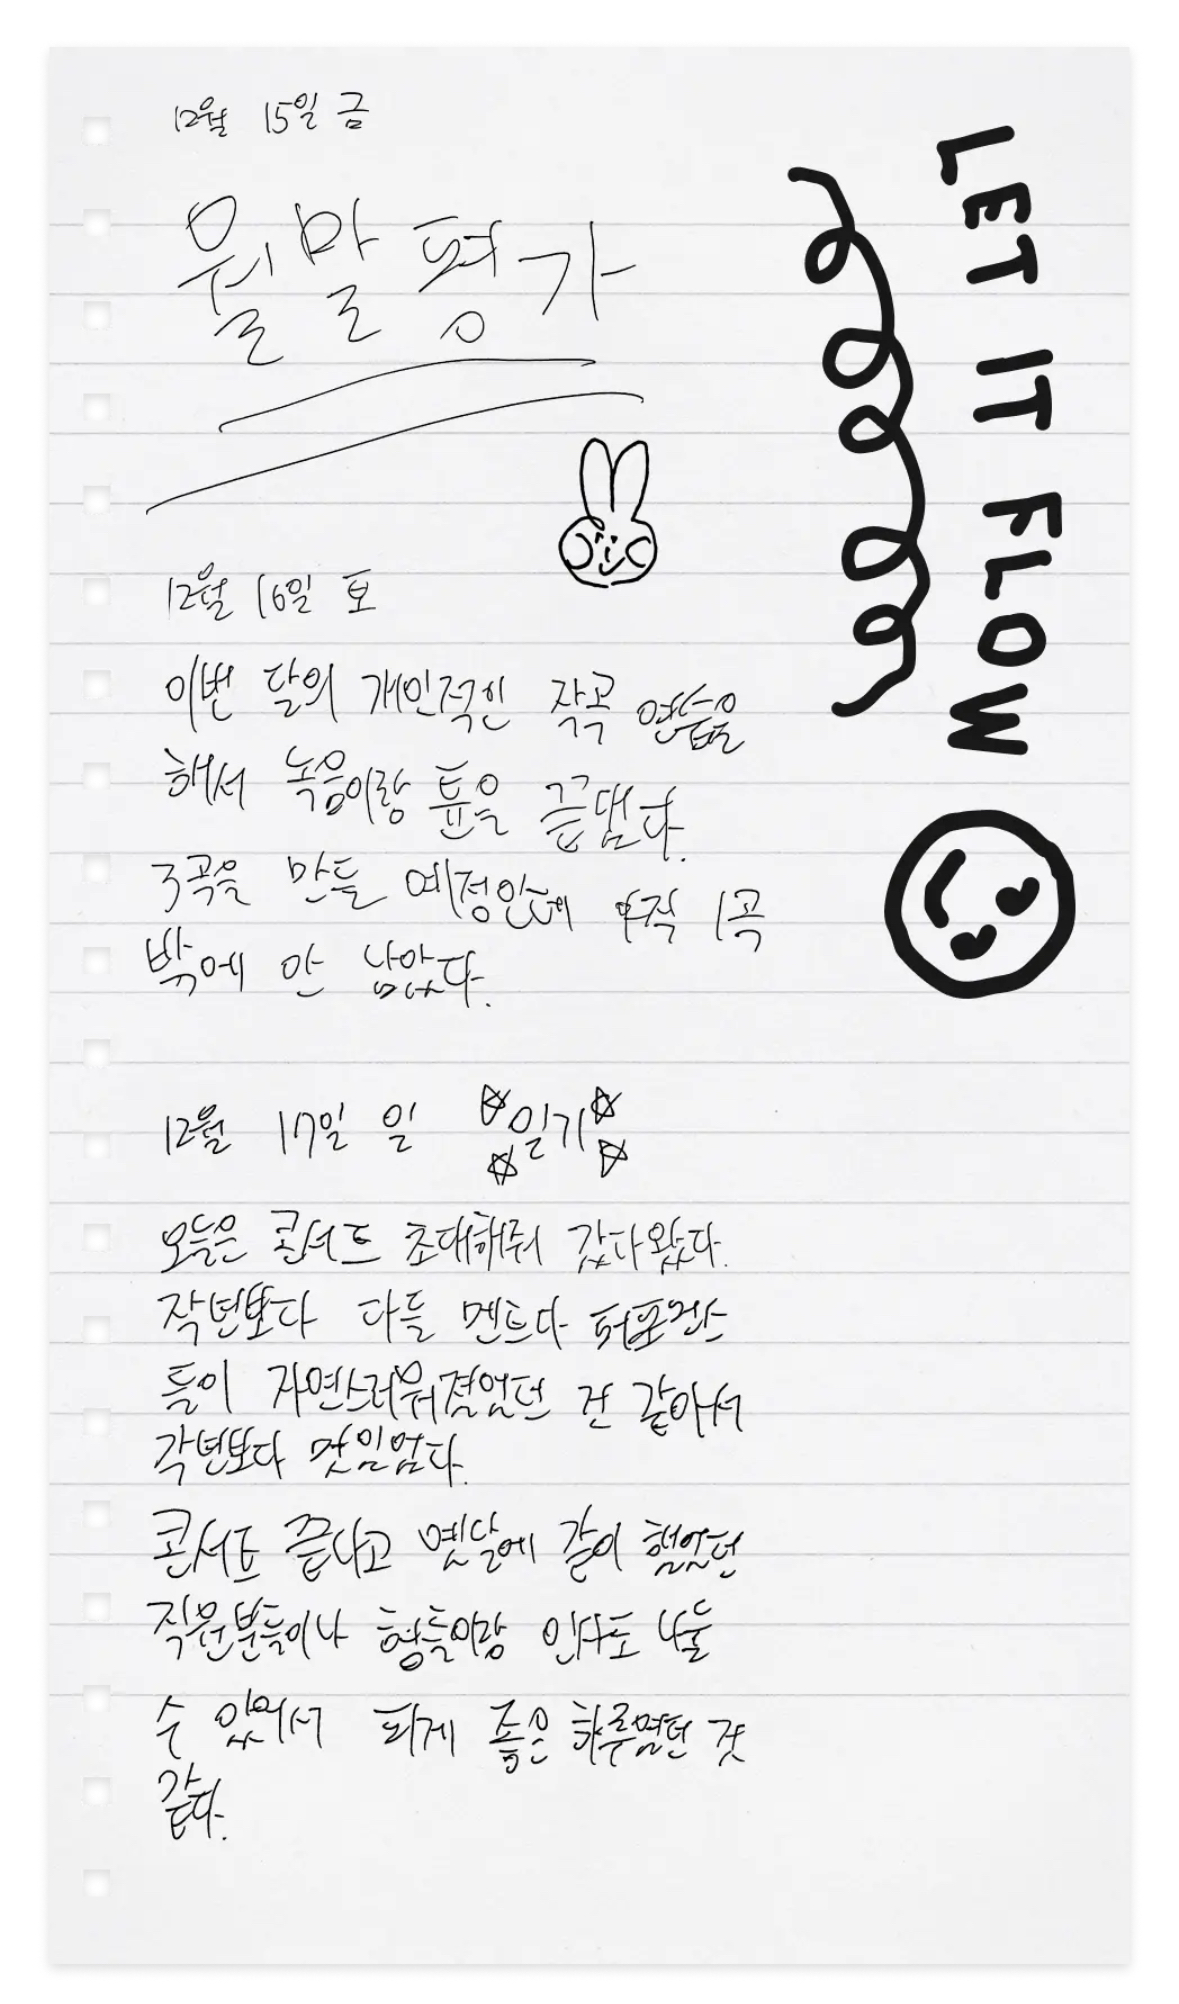 12월 15일 금
월말평가
12월 16일 토
이번 달의 개인적인 작곡 연습을
해서 녹음이랑 튠을 끝냈다.
3곡을 만들 예정인데 아직 1곡
밖에 안 남았다.
12월 17일 일 일기
오늘은 콘서트 초대해줘 갔다왔다.
작년보다 다들 멘트다 퍼포먼스
들이 자연스러워졌었던 건 같아서
작년보다 멋있었다.
콘서트 끝나고 옛날에 같이 했었던
직원분들이나 형들이랑 인사도 나눌
수 있어서 되게 좋은 하루였던 것
같다.
LET IT FLOW